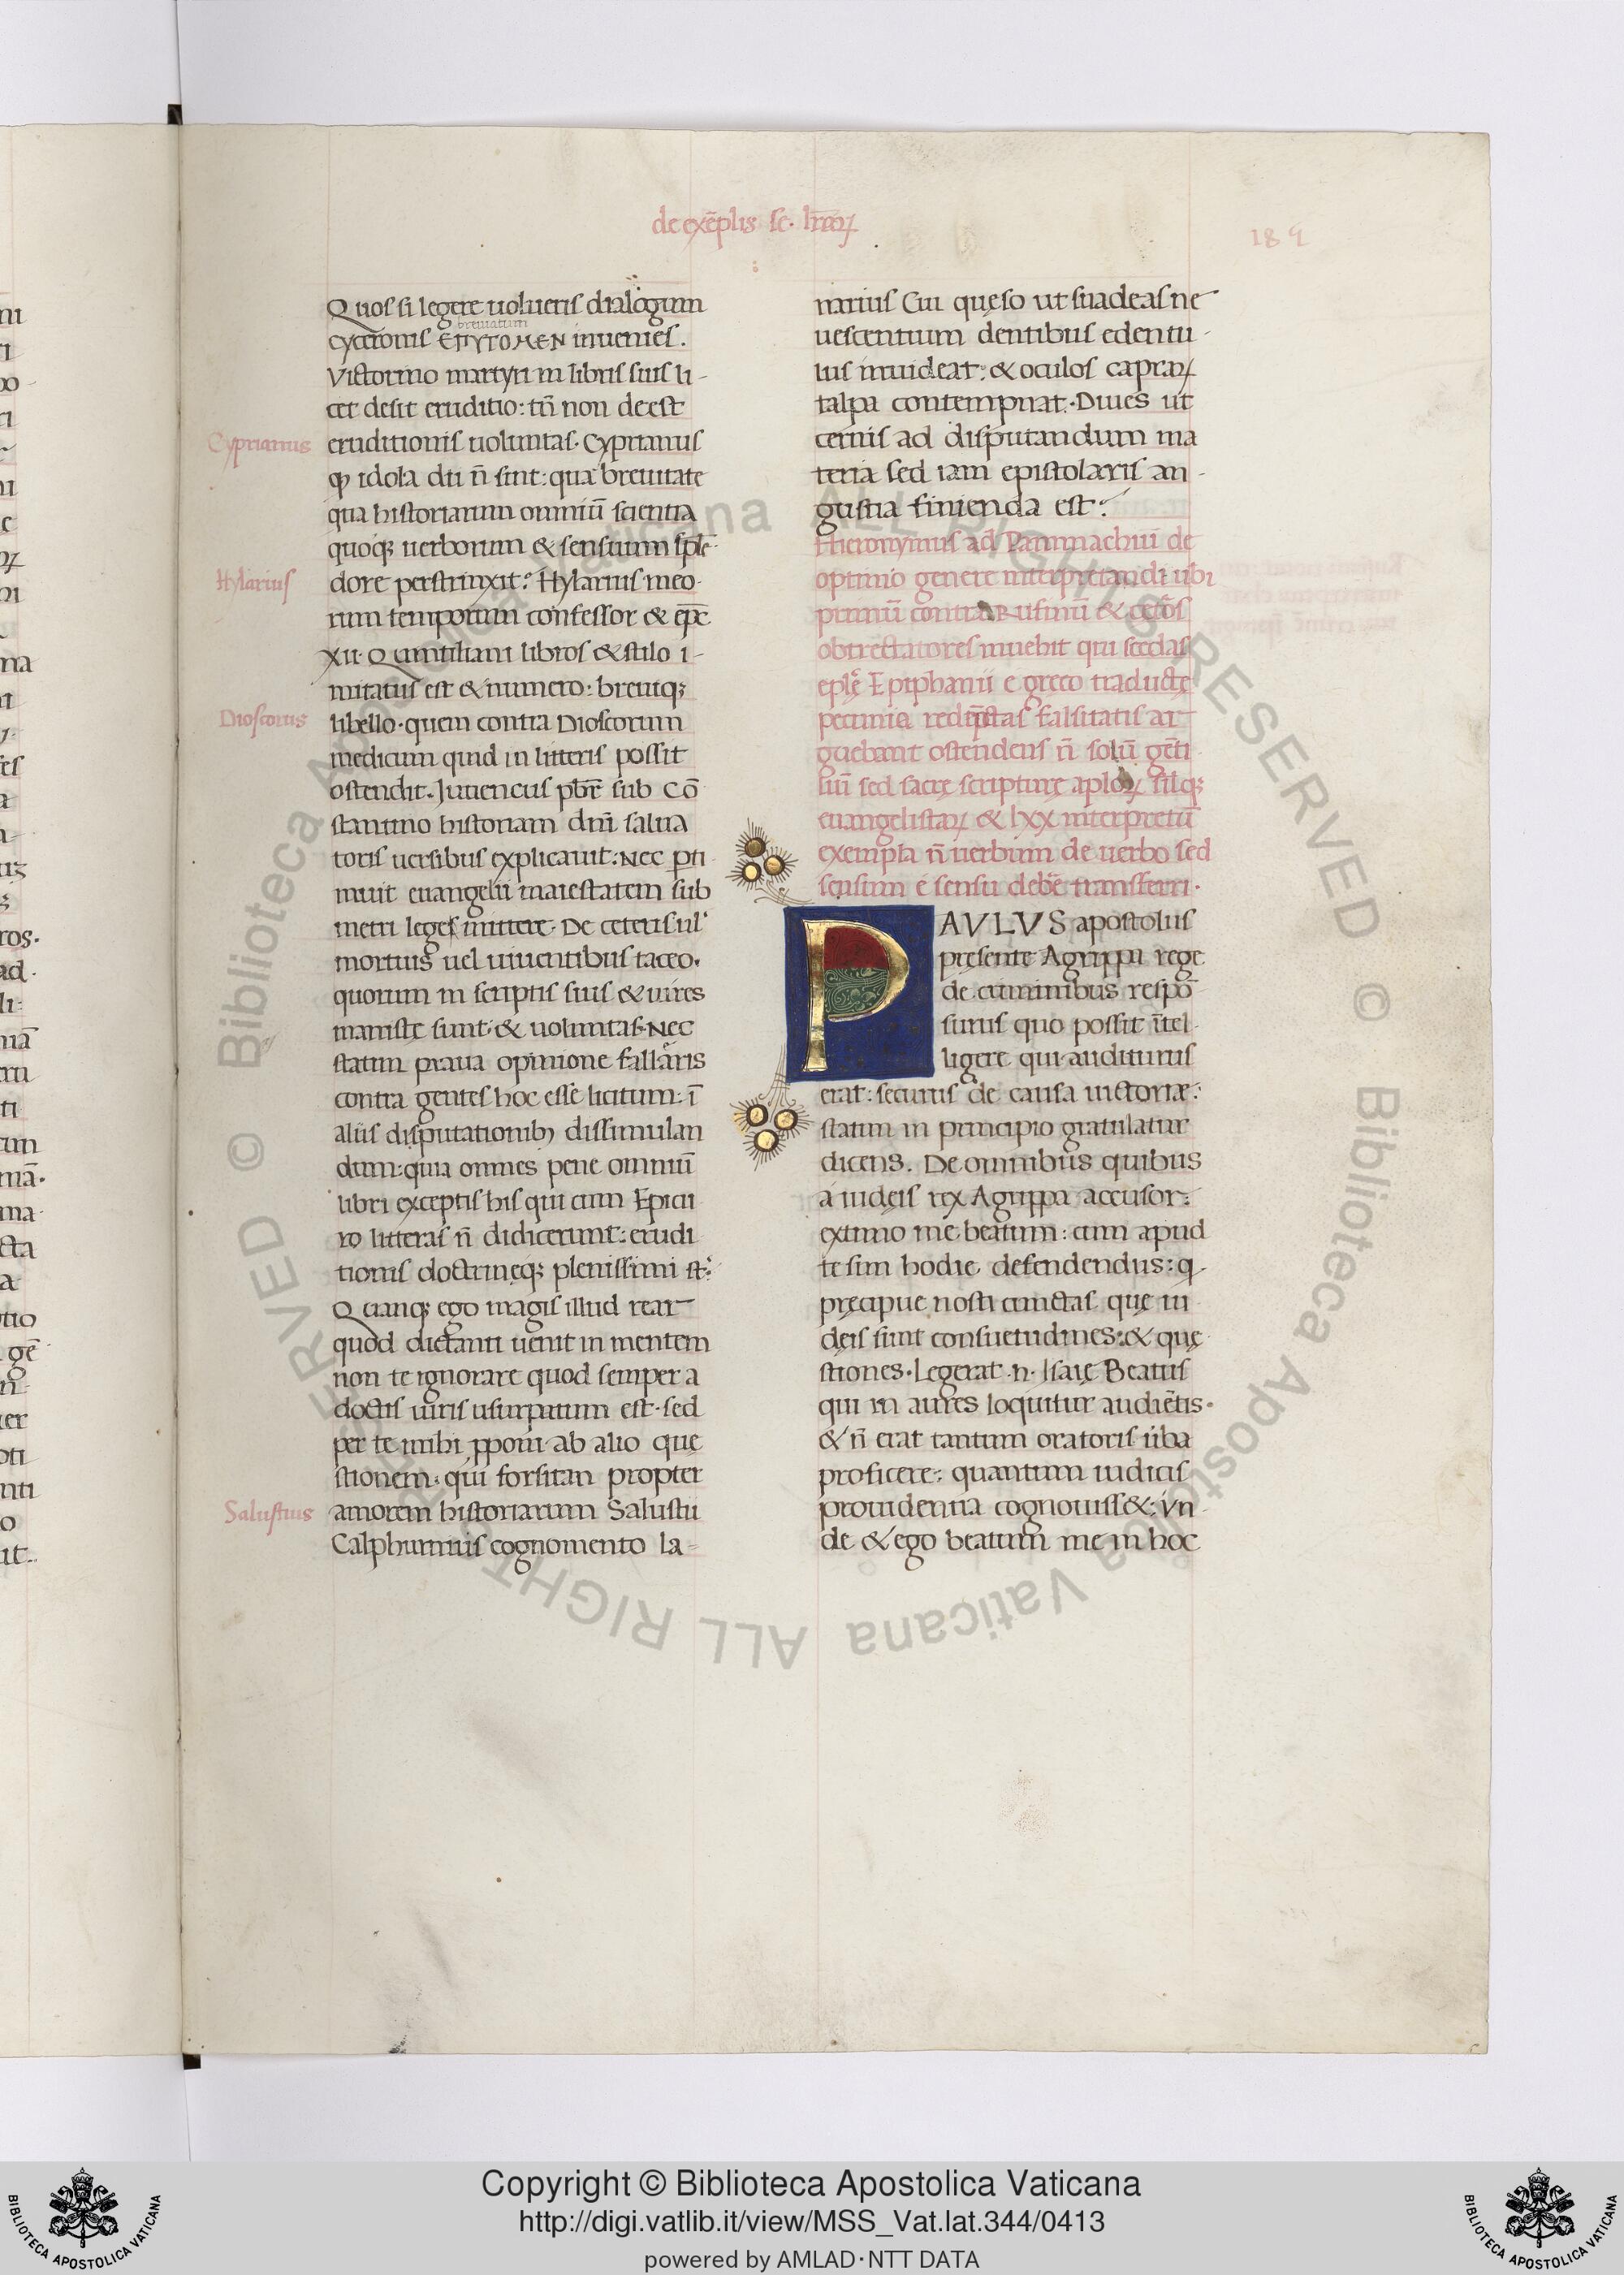 de exēplis sc. lr̄arꝝ
189
Quos si legere uolueris dialogum
breuiatum
cyceronis ЄΠΥΤΟΜЄΝ inuenies.
Victorino martyri in libris suis li-
cet desit eruditio: tn̄ non deest
Cyprianus
eruditionis uoluntas. Cyprianus
ꝙ idola dii n̄ sint: qua breuitate
qua historiarum omniū scientia
quoqꝫ uerborum & sensuum splē-
Hylarius
dore perstrinxit? Hylarius meo-
rum temporum confessor & ep̄c
XII. Quintiliani libros & stilo i-
mitatus est & numero: breuiqꝫ
Dioscorus
libello. quem contra Dioscorum
medicum quid in litteris possit
ostendit. Iuuencus pb̄r sub Cō
stantino historiam dn̄i salua
toris uersibus explicauit: Nec ꝑti-
muit euangelii maiestatem sub
metri leges mittere. De ceteris ul'
mortuis uel uiuentibus taceo.
quorum in scriptis suis & uires
maniste sunt: & uoluntas. Nec
statim praua opinione fallaris
contra gentes hoc esse licitum: ī
aliis disputationibꝫ dissimulan
dum: quia omnes pene omniū
libri exceptis his qui cum Epicu
ro litteras n̄ didicerunt: erudi
tionis doctrineqꝫ plenissimi st̄.
Quanqꝫ ego magis illud rear
quod dictanti uenit in mentem
non te ignorare quod semper a
doctis uiris usurpatum est. sed
per te mihi ꝓponi ab alio quę
stionem. qui forsitan propter
Salustius
amorem historiarum Salustii
Calphurnius cognomento la-
narius Cui queso ut suadeas ne
uescentium dentibus edentu-
lus inuideat: & oculos caprarꝝ
talpa contempnat. Diues ut
cernis ad disputandum ma
teria sed iam epistolaris an-
gustia finienda est.
Hieronymus ad Pammachiū de
optimo genere interpretandi ubi
primū contra Rufinū & cet̄os
obtrectatores inuehit qui scedas
eplę̄ Epiphanii e gręco traductę
pecunia redēptas falsitatis ar
guebant ostendens n̄ solū gēti
liū sed sacrę scripturę aplorꝝ silqꝫ
euangelistarꝝ & lxx interpretū
exempla n̄ uerbum de uerbo sed
sensum e sensu debē transferri.
PAVLVS apostolus
pręsente Agrippa rege
de criminibus respō
surus quo possit ītel
ligere qui auditurus
erat: securus de causa uictoriæ:
statim in principio gratulatur
dicens. De omnibus quibus
a iudęis rex Agrippa accusor:
extimo me beatum: cum apud
te sim hodie defendendus: q
pręcipue nosti cunctas quę iu
dęis sunt consuetudines: & quę
stiones. Legerat .n. Isaię Beatus
qui in aures loquitur audiētis.
& n̄ erat tantum oratoris ūba
proficere: quantum iudicis
prouidentia cognouiss&: Vn-
de & ego beatum me in hoc
Copyright © Biblioteca Apostolica Vaticana
http://digi.vatlib.it/view/MSS_Vat.lat.344/0413
powered by AMLAD·NTT DATA
BIBLIOTECA APOSTOLICA VATICANA
BIBLIOTECA APOSTOLICA VATICANA
© Biblioteca Apostolica Vaticana ALL RIGHTS RESERVED © Biblioteca Apostolica Vaticana ALL RIGHTS RESERVED